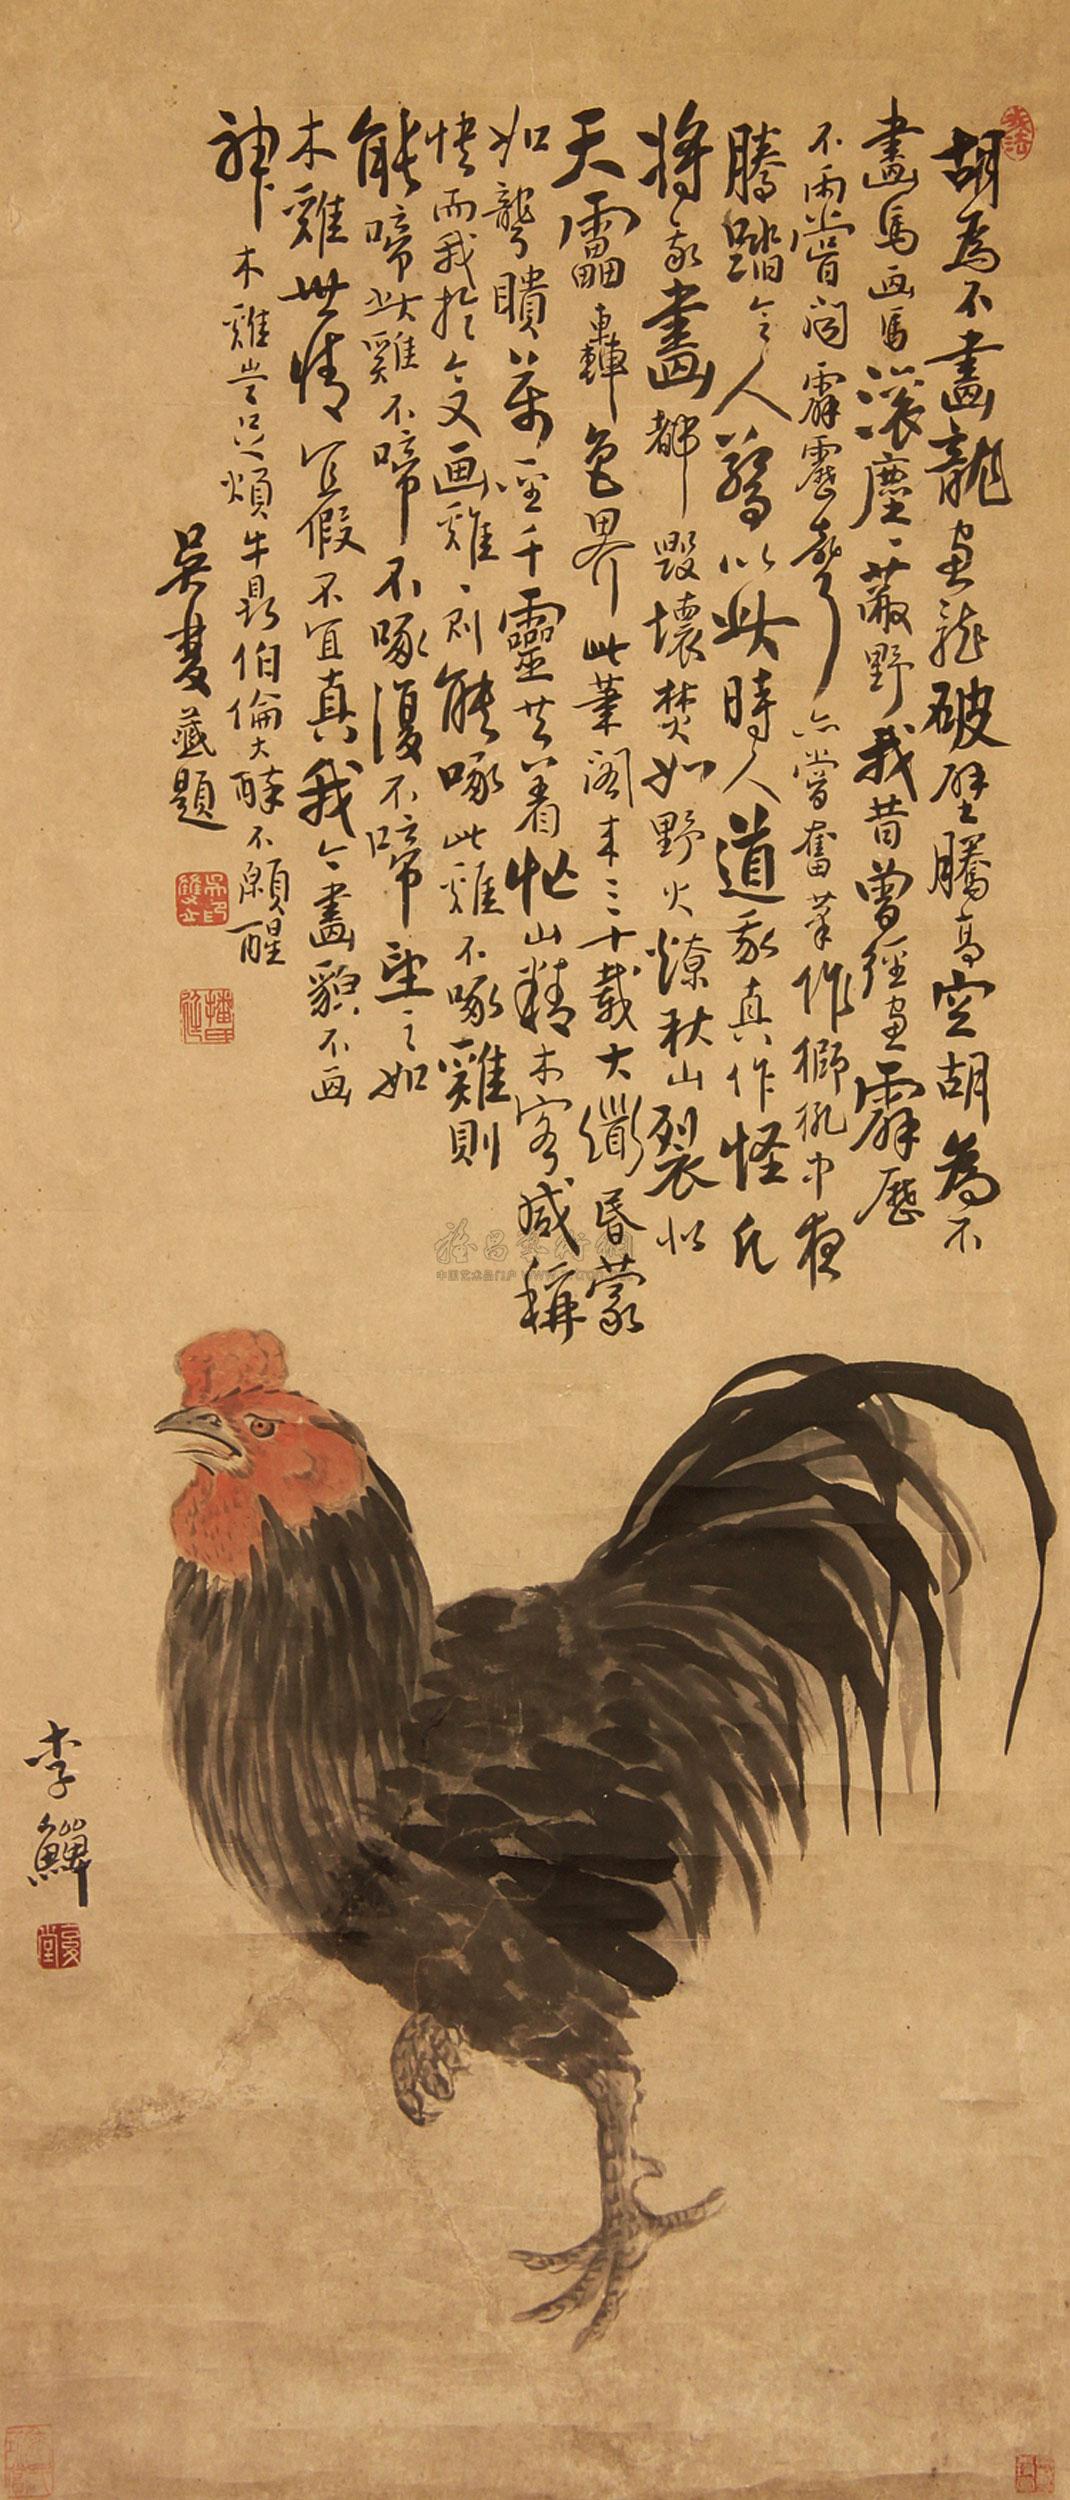 胡為不畫龍畫龍破壁騰高空胡為不
畫馬画馬滾塵塵蔽野我昔曾經畫霹靂
不雨嘗闻霹靂聲亦嘗奮筆作獅吼中夜
騰踏令人驚以此時人道我真作怪凡
將我畫都毀壞焚如野火燎秋山裂似
天雷轟色界此筆阁来三十載大衟昏蒙
如聾聵萬聖千靈共着忙山精木客咸稱
快而我於今又画雞雞則能啄此雞不啄雞則
能啼此雞不啼不啄復不啼望之如
木雞世情宜假不宜真我今畫貌不画
神木雞豈只煩牛鼎伯倫大醉不願醒
吳雙藏題
李鱓
中国艺术品门户